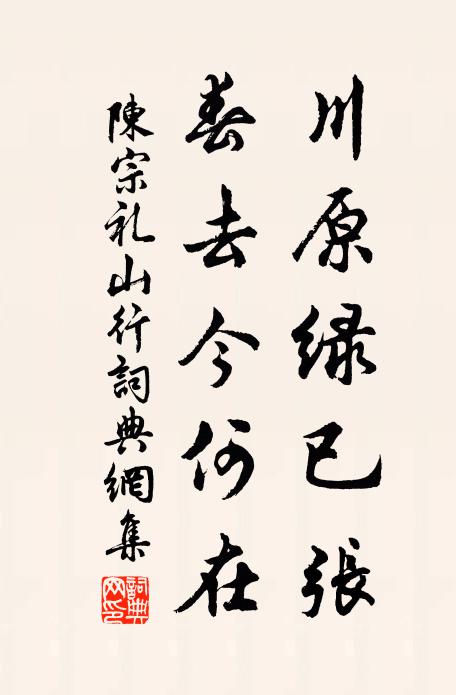 川原緑已張
春去今何在
陳宗礼山行詞典網集
詞典網印